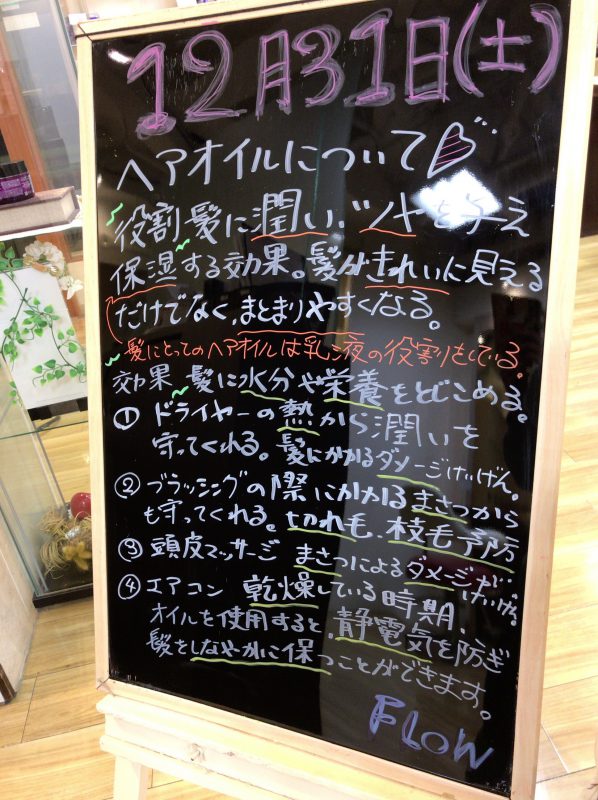 12月31日(土)
ヘアオイルについて
役割 髪に潤い、ツヤを与え
保湿する効果。髪がきれいに見える
だけでなく、まとまりやすくなる。
髪にとってのヘアオイルは乳液の役割をしている。
効果 髪に水分や栄養をとじこめる。
① ドライヤーの熱から潤いを
守ってくれる。髪にかかるダメージけいげん。
② ブラッシングの際にかかるまさつから
も守ってくれる。切れ毛、枝毛予防
③ 頭皮マッサージ まさつによるダメージがけいげん。
④ エアコン 乾燥している時期、
オイルを使用すると、静電気を防ぎ
髪をしなやかに保つことができます。
FLOW